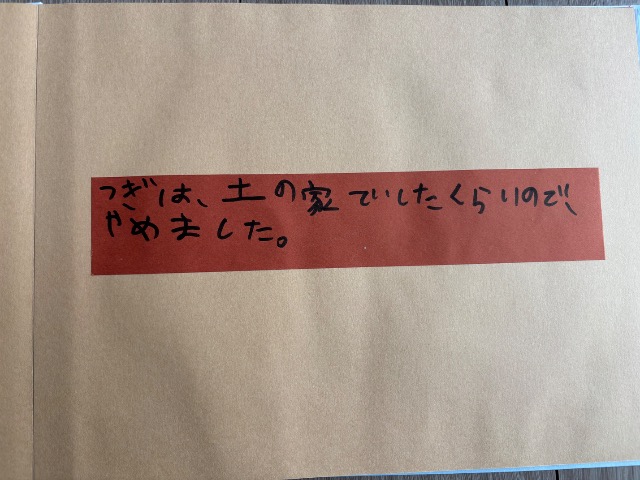 つぎは、土の家でいしたくらいので、
やめました。